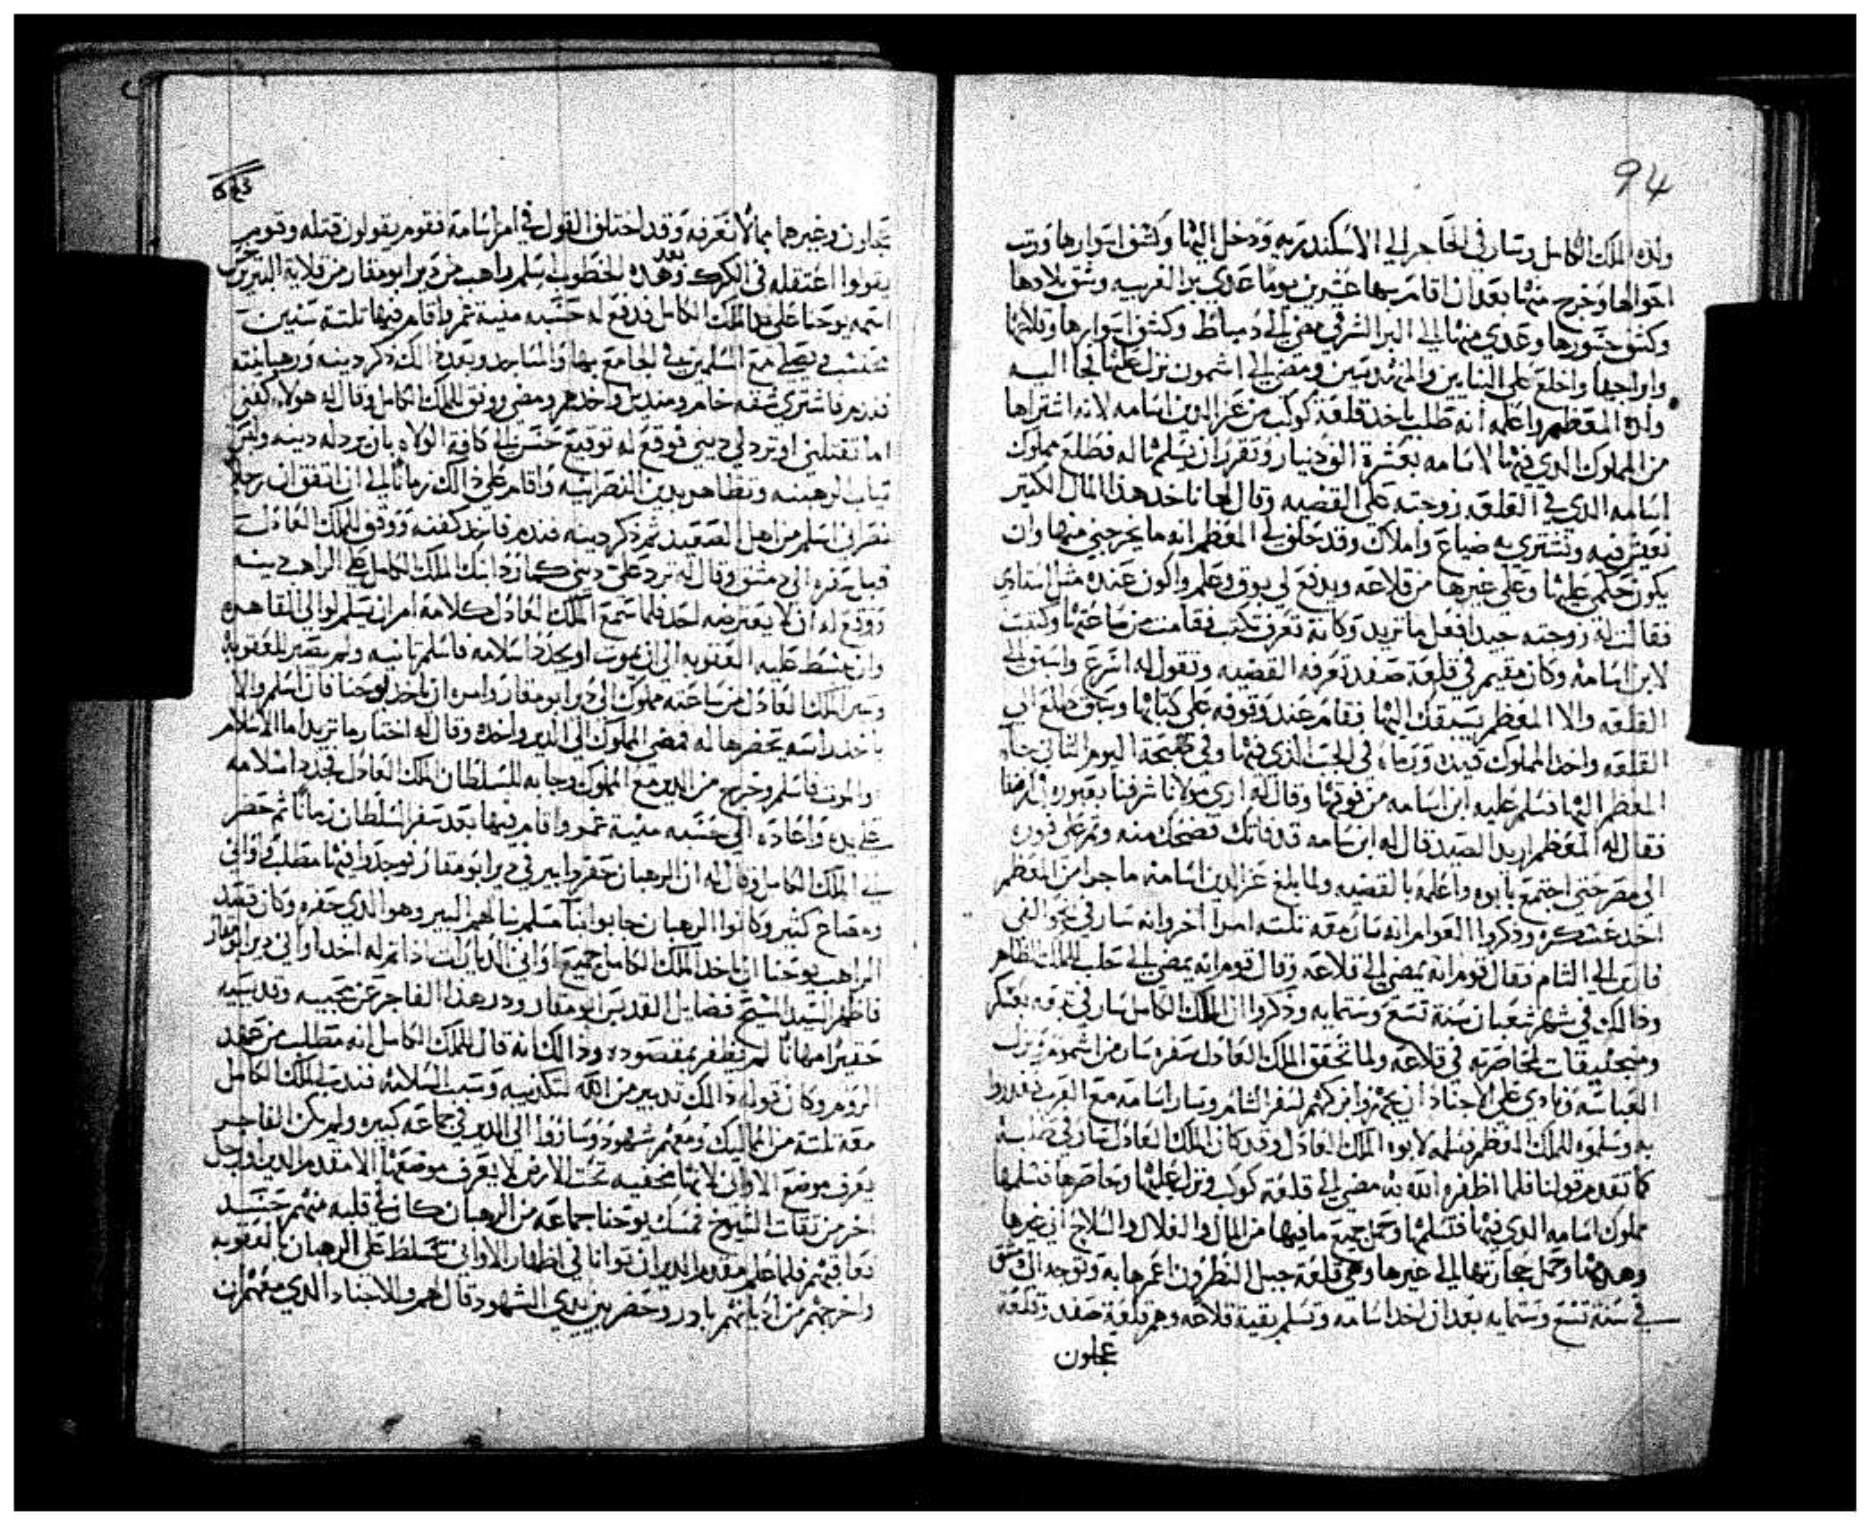 94
ولده الملك الكامل وسار في الحاجر الي الاسكندريه ودخل اليها وكشف اسوارها ورتب
احوالها وخرج منها بعد ان اقام بها عشرين يوما عدي بر الغربيه وشق بلادها
وكشف جسورها وعدي منها الي البر الشرقي ومضي الي دمياط وكشف اسوارها وقلاعها
وابراجها واخلع علي البنايين والمهندسين ومضي الي اشمون نزل عليها فجا اليه
ولده المعظم واعلمه انه طلب ياخد قلعة كوكب من عز الدين اسامه لانه اشتراها
من المملوك الدي فيها لاسامه بعشرة الف دينار وتقرر ان يسلمها له فطلع مملوك
اسامه الدي في القلعه زوجته علي القضيه وقال لها ناخد هذا المال الكتير
نعيش فيه ونشتري به ضياع واملاك وقد حلف لي المعظم انه ما يخرجني منها وان
يكون حكمي عليها وعلي غيرها من قلاعه ويدفع لي بوق وعلم واكون عنده مثل استادي
فقالت له زوجته جيد افعل ما تريد وكانه تعرف تكتب فقامت من ساعتها وكتبت
لابن اسامه وكان مقيم في قلعة صفد تعرفه القضيه وتقول له اسرع واسبق الي
القلعه والا المعظم يسبقك اليها فقام عند وقوفه علي كتابها وسبق طلع الي
القلعه واخد المملوك قيده ورماه في الجب الذي فيها وفي صبيحة اليوم التاني جاه
المعظم اليها فسلم عليه ابن اسامه من فوقها وقال له اري مولانا شرفنا بعبوره في ارضنا
فقال له المعظم اريد الصيد قال له ابن اسامه قد فاتك فضحك منه ومر علي فوره
الي مصر حتي اجتمع بابوه واعلمه بالقضيه ولما بلغ عز الدين اسامه ما جرا من المعظم
اخد عسكره وذكروا العوام انه سار معه تلته امرا اخر وانه سار في نحو الفي
فارس الي الشام فقال قوم انه يمضي الي قلاعه وقال قوم انه يمضي الي حلب للملك الظاهر
وذالك في شهر شعبان سنة تسع وستمايه وذكروا ان الملك الكامل سار في عسكر
ومنجنيقات لمحاصرته في قلاعه ولما تحقق الملك العادل سفره سار من اشموم نزل
العباسه ونادي علي الاجناد ان يجهزوا بركهم لسفر الشام وسار اسامه مع العرب فغدروا
به وسلموه للملك المعظم فسلمه لابوه الملك العادل وقد كان الملك العادل سار في طلبه
كما تقدم قولنا فلما اظفره الله به مضي الي قلعة كوكب ونزل عليها وحاصرها فسلمها
مملوك اسامه الدي فيها فتسلمها وحمل جميع ما فيها من المال والغلال والسلاح الي غيرها
وهدمها وحمل حجارتها الي غيرها وهي قلعة جبل الطور ان اعمرها به وتوجه الي دمشق
في سنة تسع وستمايه بعد ان اخد اسامه وتسلم بقية قلاعه وهم قلعة صفد وقلعة
عجلون
عجلون وغيرهما مما لا نعرفه وقد اختلف القول في امر اسامة فقوم يقولون قتله وقوم
يقولوا اعتقله في الكرك وبعد هذه الخطوب اسلم راهب من دير ابو مقار من قلاية
اسمه يوحنا علي يد الملك الكامل فدفع له حسبة منية غمر واقام فيها تلتة سنين
محتشم ويصلي مع المسلمين في الجامع بها والمساجد وبعد ذالك ذكر دينه ورهبانيته
فندم فاشتري شقه خام ومنديل واخدهم ومضي ووقف للملك الكامل وقال له هولاء كفني
اما تقتلني او ترد لي ديني فوقع له توقيع حسن الي كافة الولاه بان يرد له دينه ولبس
تياب الرهبنه وتظاهر بدين النصرانيه واقام علي ذالك زمانا الي ان اتفق ان رجلا
نصراني اسلم من اهل الصعيد ثم ذكر دينه فندم فاخد كفنه ووقف للملك العادل
في سفره الي دمشق وقال له ترد علي ديني كما رد ابنك الملك الكامل علي الراهب دينه
ووقع له ان لا يعترضه احد فلما سمع الملك العادل كلامه امر ان يسلم لوالي القاهره
وان يبسط عليه العقوبه الي ان يموت او يجدد اسلامه فاسلم تانيه ولم يصبر للعقوبه
وسير الملك العادل من ساعته مملوك الي دير ابو مقار وامره ان ياخد يوحنا فان اسلم والا
ياخد راسه يحضرها له فمضي المملوك الي الدير واخده وقال له اختار ما تريد اما الاسلام
والموت فاسلم وخرج من الدير مع المملوك وجا به للسلطان الملك العادل فجدد اسلامه
علي يده واعاده الي حسبه منية غمر واقام فيها بعد سفر السلطان زمانا ثم حضر
الي الملك الكامل وقال له ان الرهبان حفروا بير في دير ابو مقار فوجدوا فيها مطلب اواني
ومصاغ كتير وكانوا الرهبان جابوا بنا مسلم بنا لهم البير وهو الدي حفره وكان قصد
الراهب يوحنا ان ياخد الملك الكامل جميع اواني الديارات اذا تم له اخد اواني دير ابو مقار
فاظهر السيد المسيح فضايل القديس ابو مقار ورد هذا الفاجر عن
حقيرا مهانا لم يظفر بمقصوده وذالك انه قال للملك الكامل انه مطلب من عهد
الروم وكان قوله ذالك تدبير من الله لتكذيبه وسبب السلامه فندب الملك الكامل
معه تلتة من المماليك ومعهم شهود وساروا الي الدير في جماعه كبيره ولم يكن الفاجر
يعرف موضع الاواني لانها مخفيه تحت الارض لا يعرف موضعها الا مقدم الدير ورجل
اخر من تقات الشيوخ فمسك يوحنا جماعه من الرهبان كان في قلبه منهم حسد
فعاقبهم فلما علم مقدم الدير ان توانا في اظهار الاواني تسلط علي الرهبان بالعقوبه
واخرجهم من اديانهم بادر وحضر بين يدي الشهود قال لهم والاجناد الدي معهم ان